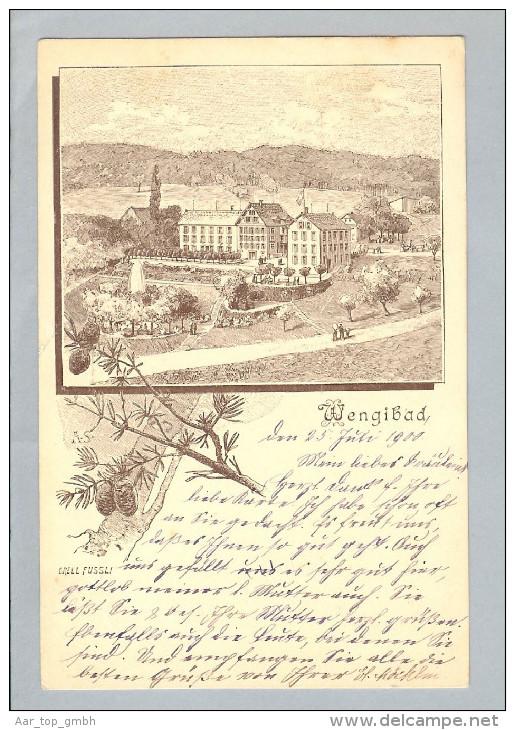 Wengibad
den 25 Juli 1900
Mein liebes Fräulein
Herzl. Dank f. ihre
liebe Karte Ich habe schon oft
an Sie gedacht. Es freut uns
daß es Ihnen so gut geht. Auch
uns gefällt es sehr gut hier,
gottlob meiner l. Mutter auch. Sie
läßt Sie & bes. Ihre Mutter herzl. grüßen
Ebenfalls auch die Leute, bei denen Sie
sind. Und empfangen Sie alle die
besten Grüße von Ihrer
A.S.
ORELL FUSSLI
Aar_top_gmbh
www.delcampe.net